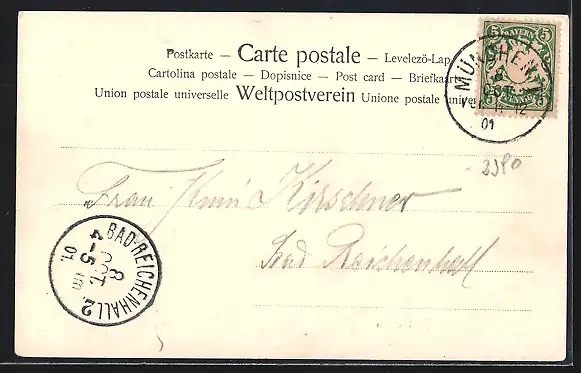 Postkarte – Carte postale – Levelező-Lap
Cartolina postale – Dopisnice – Post card – Briefkaart
Union postale universelle Weltpostverein Unione postale univers
BAYERN
5 5
5
PFENNIG
MÜNCHEN
8
OCT.
11-12
01
2380
Frau Kirschner
Bad Reichenhall
BAD-REICHENHALL 2.
8 OCT.
4-5 NM
01.